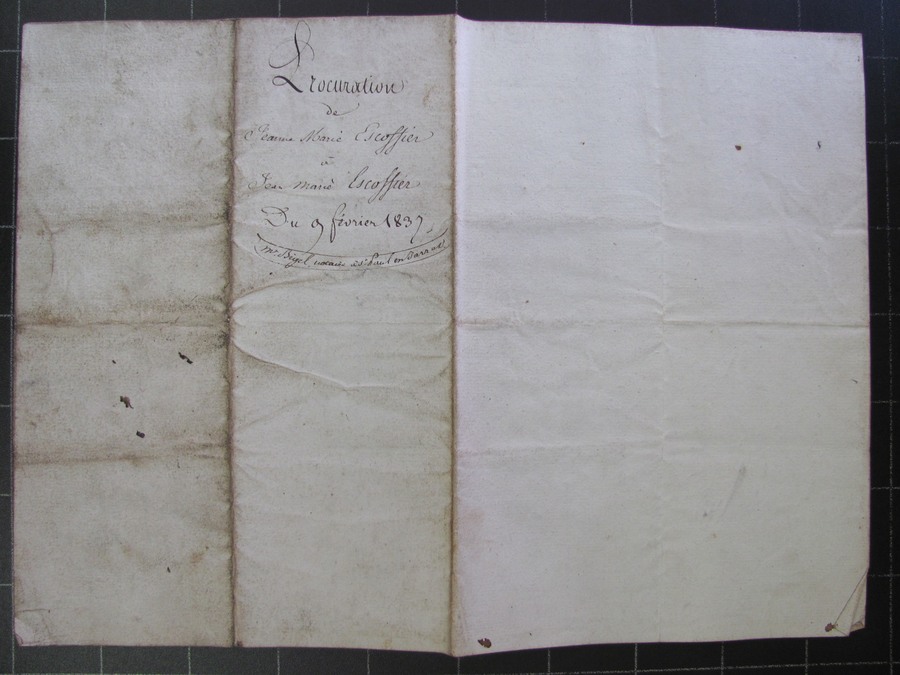 Procuration
de
Jeanne Marie Escoffier
à
Jean marie Escoffier
Du 9 février 1837,
Me notaire à St Paul en Jarret